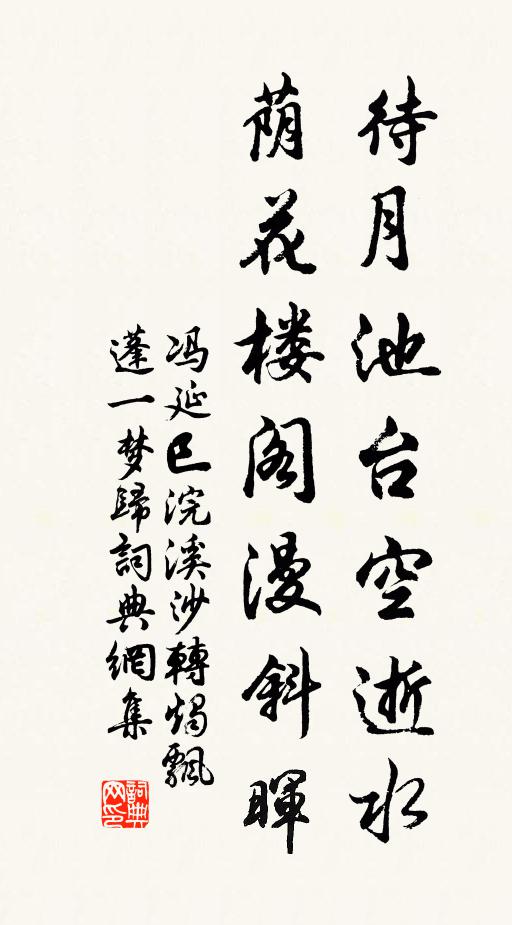 待月池台空逝水
荫花楼阁漫斜暉
冯延巳浣溪沙轉燭飄
蓬一梦歸詞典網集
詞典
网印